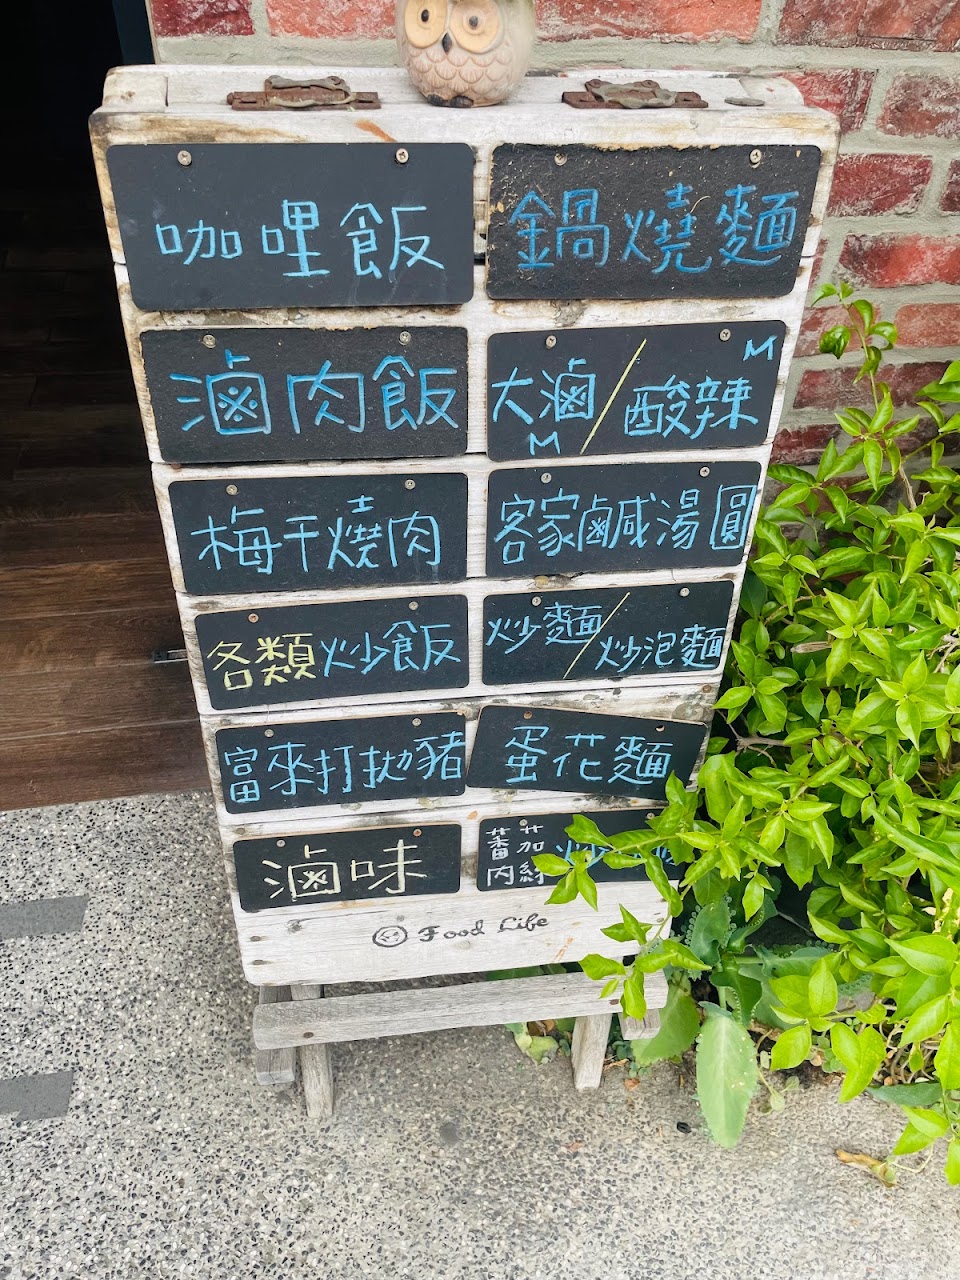 咖哩飯
鍋燒麵
滷肉飯
大滷M/酸辣M
梅干燒肉
客家鹹湯圓
各類炒飯
炒麵/炒泡麵
富來打拋豬
蛋花麵
滷味
蕃茄
肉絲
炒
Food Life